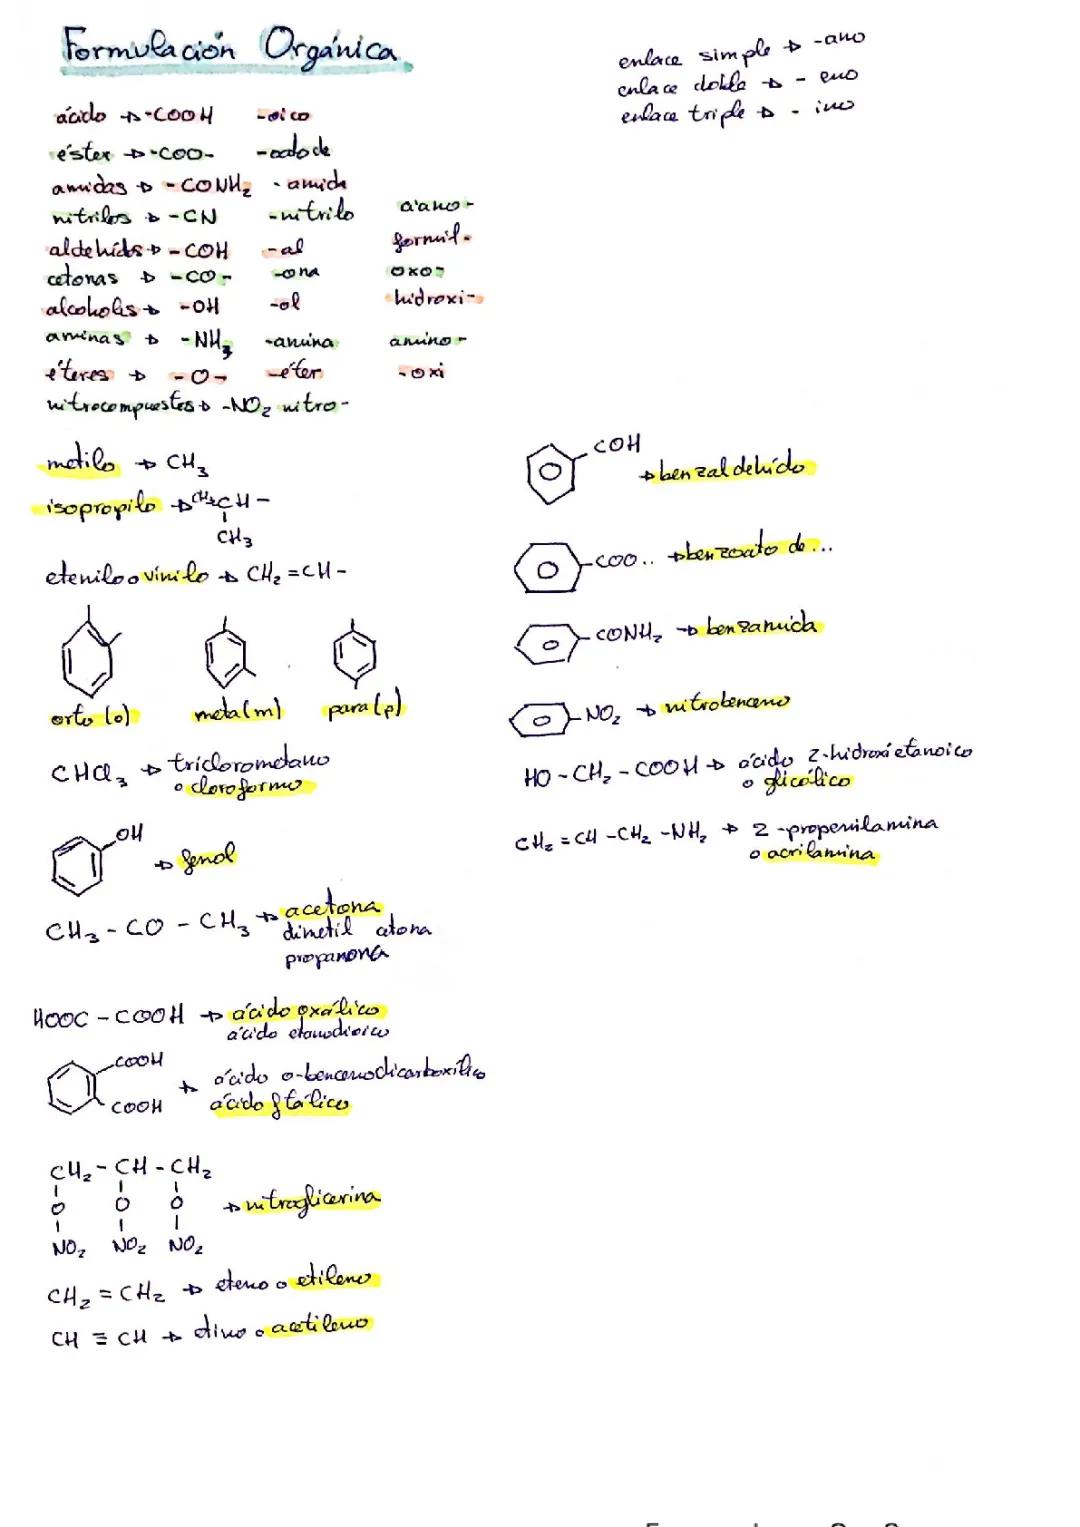 Formulación Orgánica
enlace simple → -ano
enlace doble → -eno
enlace triple → -ino
ácido → -COOH -oico
éster → -COO- -oato de
amidas → -CONH₂ -amida
nitrilos → -CN -nitrilo ciano-
aldehids → -COH -al formil-
cetonas → -CO- -ona oxo-
alcoholis → -OH -ol hidroxi-
aminas → -NH₃ -amina amino-
éteres → -O- -éter -oxi
nitrocompuestos → -NO₂ nitro-
metilo → CH₃
isopropilo → CH₃CH-
CH₃
etenilo o vinilo → CH₂=CH-
orto (o) meta (m) para (p)
CHCl₃ → triclorometano
o cloroformo
OH
→ fenol
CH₃-CO-CH₃ → acetona
dimetil cetona
propanona
HOOC-COOH → ácido oxálico
ácido etanodioico
COOH
→ ácido o-bencenodicarboxílico
COOH ácido ftálico
CH₂-CH-CH₂
O O O → nitroglicerina
NO₂ NO₂ NO₂
CH₂=CH₂ → eteno o etileno
CH≡CH → etino o acetileno
COH
→ benzaldehído
-COO.. → benzoato de...
-CONH₂ → benzamida
-NO₂ → nitrobenceno
HO-CH₂-COOH → ácido 2-hidroxietanoico
o glicólico
CH₂=CH-CH₂-NH₂ → 2-propenilamina
o acrilamina